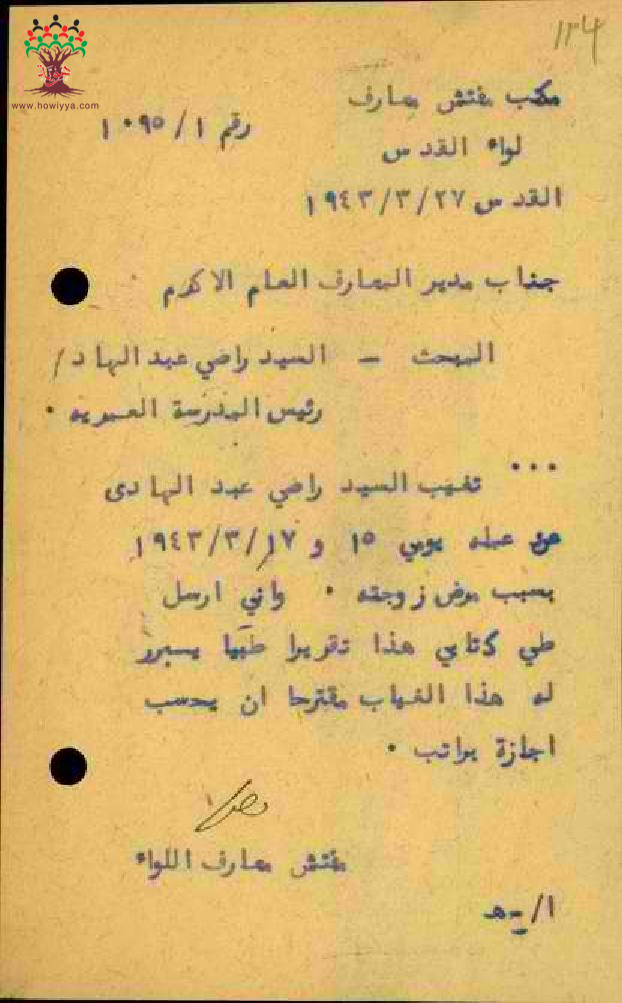 www.howiyya.com
١٣٤
مكتب مفتش معارف
لواء القدس
رقم ١/١٠٩٥
القدس ١٩٤٣/٣/٢٧
جناب مدير المعارف العام الاكرم
المبحث — السيد راضي عبد الهاد/
رئيس المدرسة العمريه .
... تغيب السيد راضي عبد الهادى
عن عمله يومي ١٥ و ١٩٤٣/٣/١٧
بسبب مرض زوجته . واني ارسل
طي كتابي هذا تقريرا طبيا يسبرر
له هذا الغياب مقترحا ان يحسب
اجازة براتب .
مفتش معارف اللواء
ا/-هـ